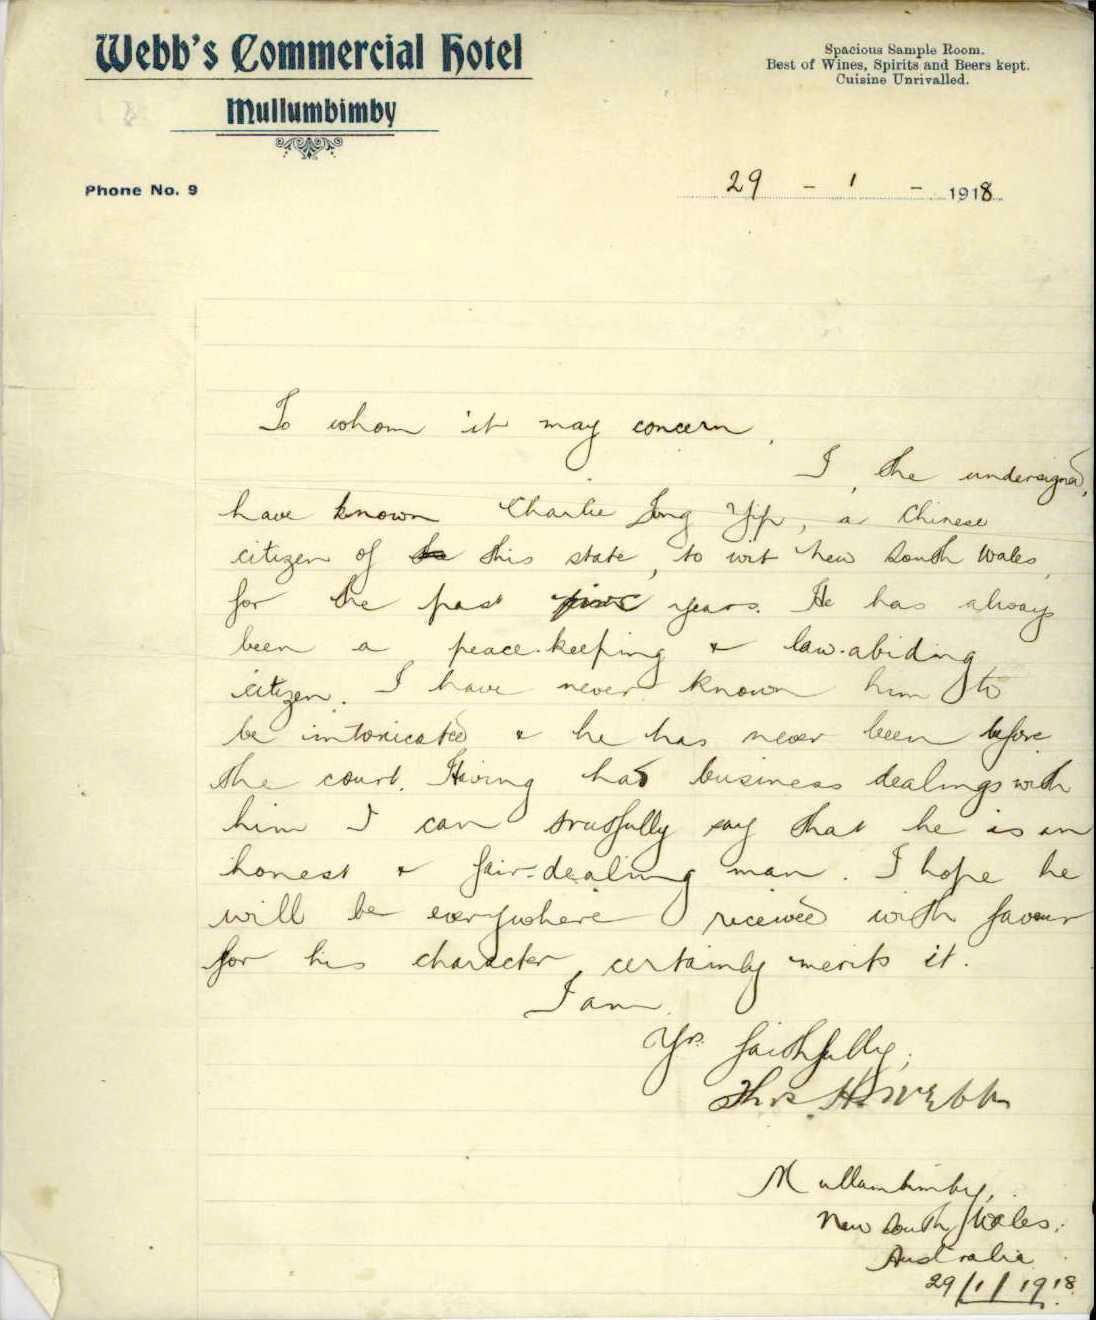 Webb's Commercial Hotel
Mullumbimby
Spacious Sample Room.
Best of Wines, Spirits and Beers kept.
Cuisine Unrivalled.
Phone No. 9
29 - 1 - 1918
To whom it may concern,
I, the undersigned,
have known Charlie Jong Yip, a Chinese
citizen of this state, to wit New South Wales,
for the past years. He has always
been a peace-keeping & law-abiding
citizen. I have never known him to
be intoxicated & he has never been before
the court. Having had business dealings with
him I can truthfully say that he is an
honest & fair-dealing man. I hope he
will be everywhere received with favour
for his character certainly merits it.
I am
Yrs faithfully,
Thos. H. Webb
Mullumbimby,
New South Wales,
Australia
29/1/1918.